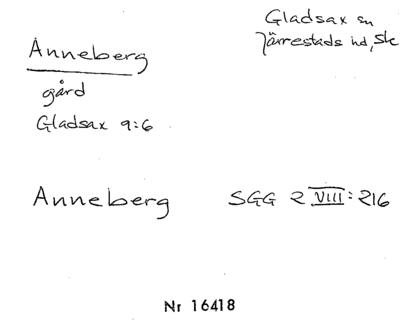 Anneberg
gård
Gladsax 9:6
Gladsax sn
Järrestads hd, Sk
Anneberg SGG 2 VIII: 216
Nr 16418